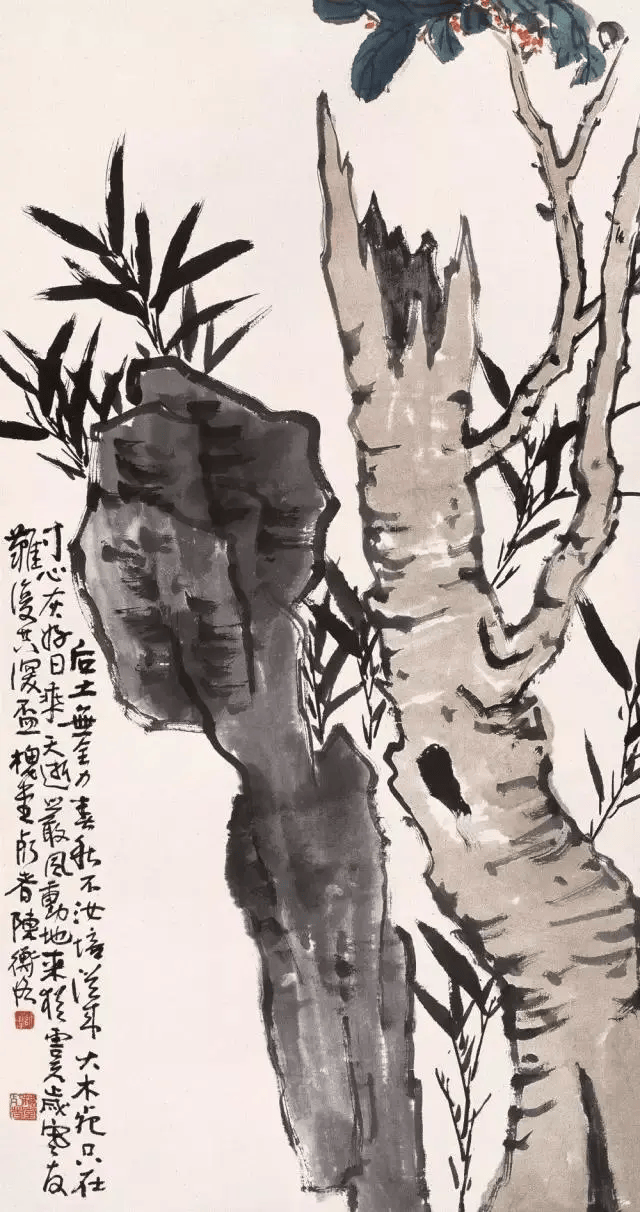 后土無全力春秋不汝培從來大木死只在
寸心灰好日乘天逝嚴風動地來猶歲寒友
難復共深盃 槐堂朽者陳衡恪